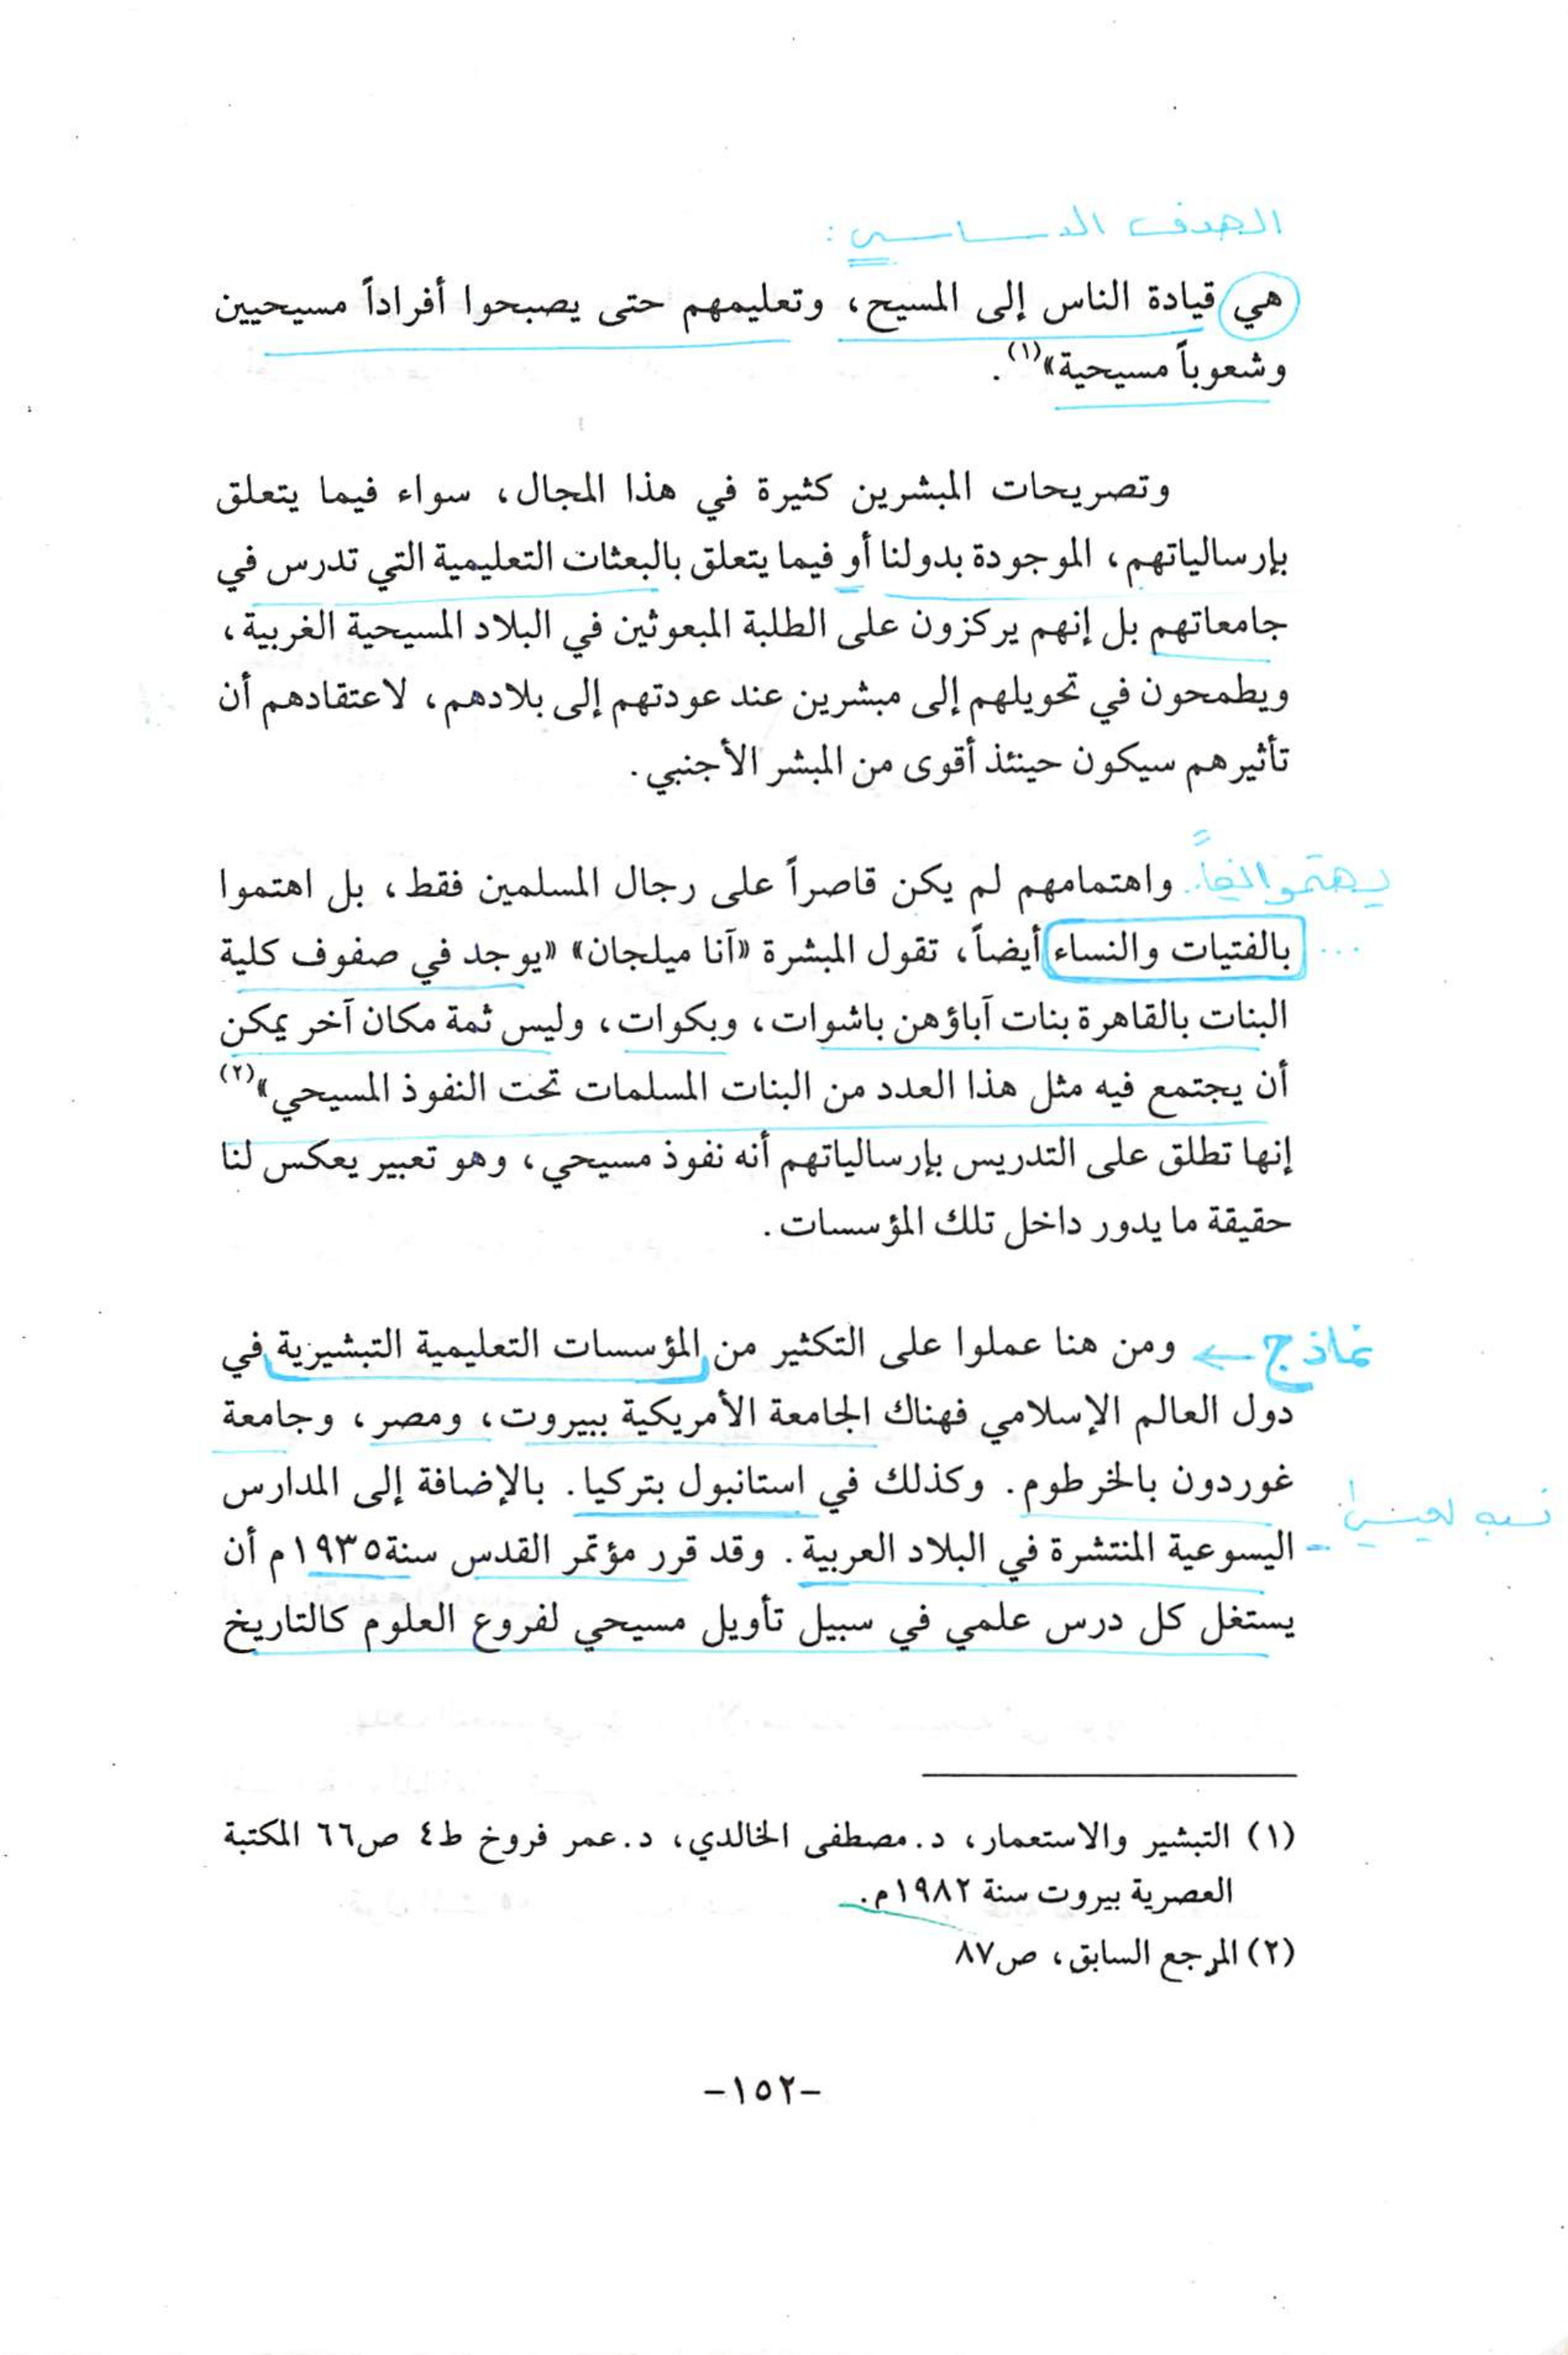 الهدف الاساسي:
هي قيادة الناس إلى المسيح، وتعليمهم حتى يصبحوا أفراداً مسيحيين
وشعوباً مسيحية»(١).
وتصريحات المبشرين كثيرة في هذا المجال، سواء فيما يتعلق
بإرسالياتهم، الموجودة بدولنا أو فيما يتعلق بالبعثات التعليمية التي تدرس في
جامعاتهم بل إنهم يركزون على الطلبة المبعوثين في البلاد المسيحية الغربية،
ويطمحون في تحويلهم إلى مبشرين عند عودتهم إلى بلادهم، لاعتقادهم أن
تأثيرهم سيكون حينئذ أقوى من المبشر الأجنبي.
يهتموا ايضاً..
واهتمامهم لم يكن قاصراً على رجال المسلمين فقط، بل اهتموا
... بالفتيات والنساء أيضاً، تقول المبشرة «آنا ميلجان» «يوجد في صفوف كلية
البنات بالقاهرة بنات آباؤهن باشوات، وبكوات، وليس ثمة مكان آخر يمكن
أن يجتمع فيه مثل هذا العدد من البنات المسلمات تحت النفوذ المسيحي»(٢)
إنها تطلق على التدريس بإرسالياتهم أنه نفوذ مسيحي، وهو تعبير يعكس لنا
حقيقة ما يدور داخل تلك المؤسسات.
نماذج ←
ومن هنا عملوا على التكثير من المؤسسات التعليمية التبشيرية في
دول العالم الإسلامي فهناك الجامعة الأمريكية ببيروت، ومصر، وجامعة
غوردون بالخرطوم. وكذلك في استانبول بتركيا. بالإضافة إلى المدارس
اليسوعية المنتشرة في البلاد العربية. وقد قرر مؤتمر القدس سنة١٩٣٥م أن
يستغل كل درس علمي في سبيل تأويل مسيحي لفروع العلوم كالتاريخ
(١) التبشير والاستعمار، د.مصطفى الخالدي، د.عمر فروخ ط٤ ص٦٦ المكتبة
العصرية بيروت سنة ١٩٨٢م.
(٢) المرجع السابق، ص٨٧
-١٥٢-